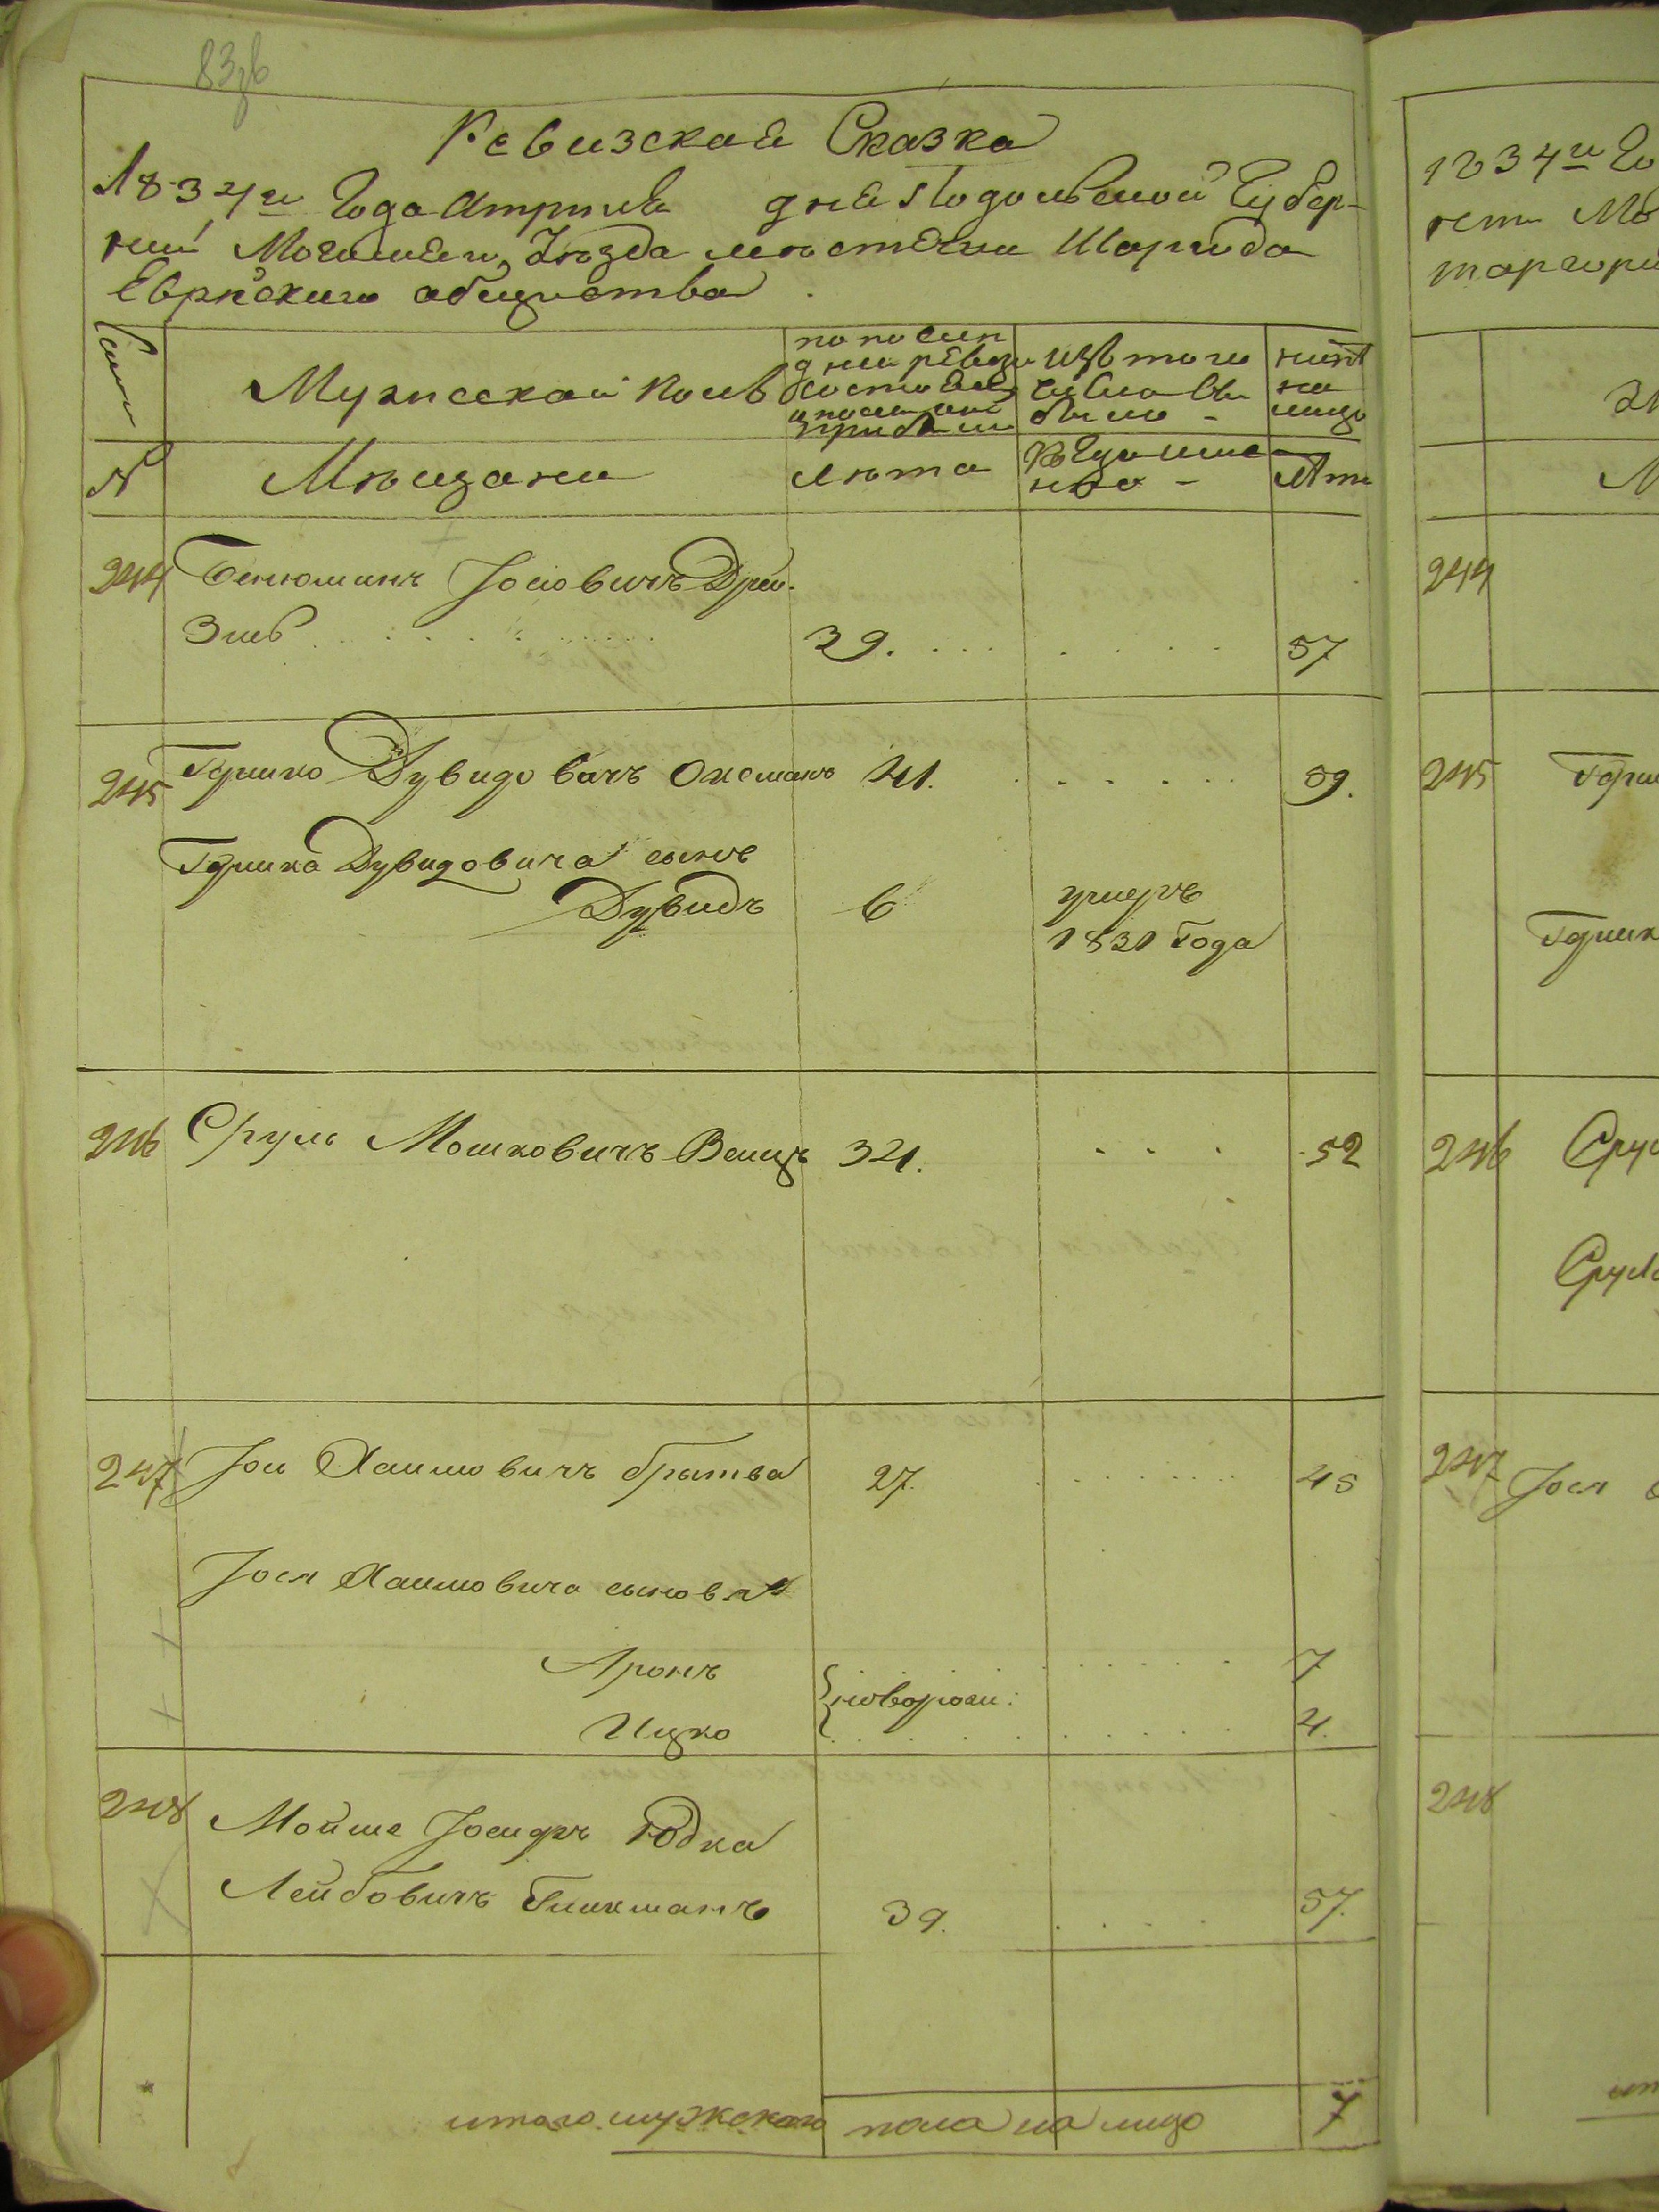 83зв
Ревизская Сказка
1834го Года Апреля дня Подольской Губер-
нии Могилев, Уезда местечка Шаргорода
Еврейского общества
Семьи
Мужеской полъ
по послед
дней ревизи
состояло
и после оной
прибыли
изъ того
числа вы
было -
ныне
на
лицо
№
Мѣщани
лѣта
Когда имен
но -
лѣта
244 Бенюминъ Іосиовичъ Дрей-
зинъ 39. 57
245 Гершко Дувидовичъ Оксманъ 41. 59.
Гершка Дувидовича сынъ
Дувидъ 6 умеръ
1831 Года
246 Сруль Мошковичъ Венцъ 34. 52
247 Іось Хаимовичъ бритва 27. 45
Іося Хаимовича сыновья
Аронъ 7
новорож:
Ицко 4.
248 Мойше Іосифъ Юдка
Лейбовичъ Гликманъ 39. 57.
итого мужскаго пола на лицо 7
1834го Го
244
245 Герш
Гершк
246 Срул
Сруля
247 Іося
248